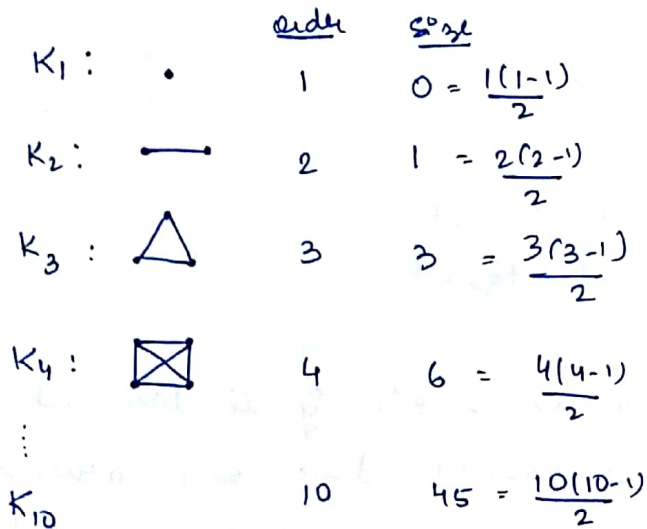 order size
K₁ : 1 0 = 1(1-1)/2
K₂ : 2 1 = 2(2-1)/2
K₃ : 3 3 = 3(3-1)/2
K₄ : 4 6 = 4(4-1)/2
⋮
K₁₀ 10 45 = 10(10-1)/2